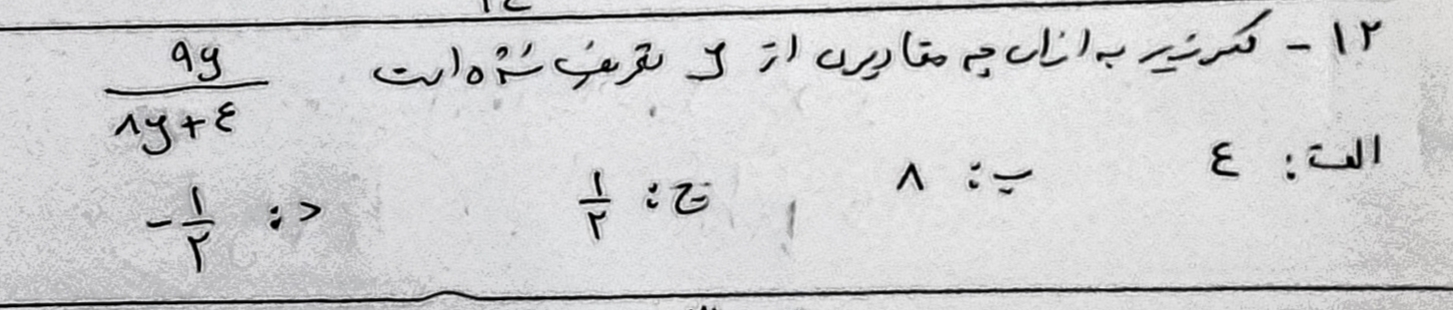 ۱۲ - کسر زیر به ازای چه مقادیری از y تعریف نشده است ۹y/۸y+٤
الف: ٤ ب: ۸ ج: ۱/۲ د: -۱/۲